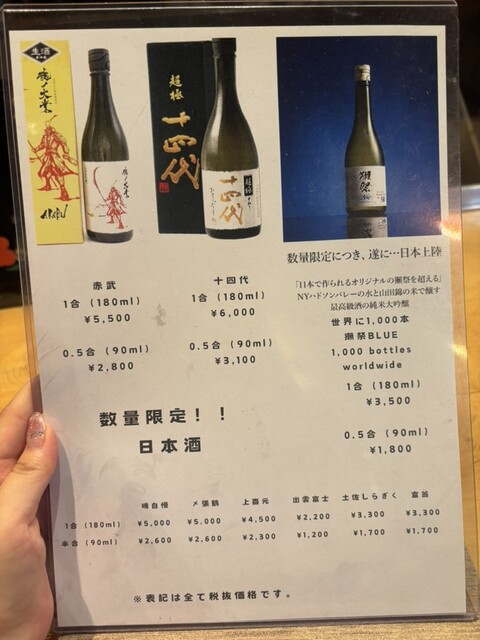 生酒
超極
十四代
AKABU
超極
十四代
獺祭
数量限定につき、遂に…日本上陸
「日本で作られるオリジナルの獺祭を超える」
NYハドソンバレーの水と山田錦の米で醸す
最高級酒の純米大吟醸
世界に1,000本
獺祭BLUE
1,000 bottles
worldwide
1合 (180ml)
¥3,500
0.5合 (90ml)
¥1,800
赤武
1合 (180ml)
¥5,500
0.5合 (90ml)
¥2,800
十四代
1合 (180ml)
¥6,000
0.5合 (90ml)
¥3,100
数量限定！！
日本酒
鳴自慢 〆張鶴 上喜元 出雲富士 土佐しらぎく 富翁
1合 (180ml) ¥5,000 ¥5,000 ¥4,500 ¥2,200 ¥3,300 ¥3,300
半合 (90ml) ¥2,600 ¥2,600 ¥2,300 ¥1,200 ¥1,700 ¥1,700
※表記は全て税抜価格です。